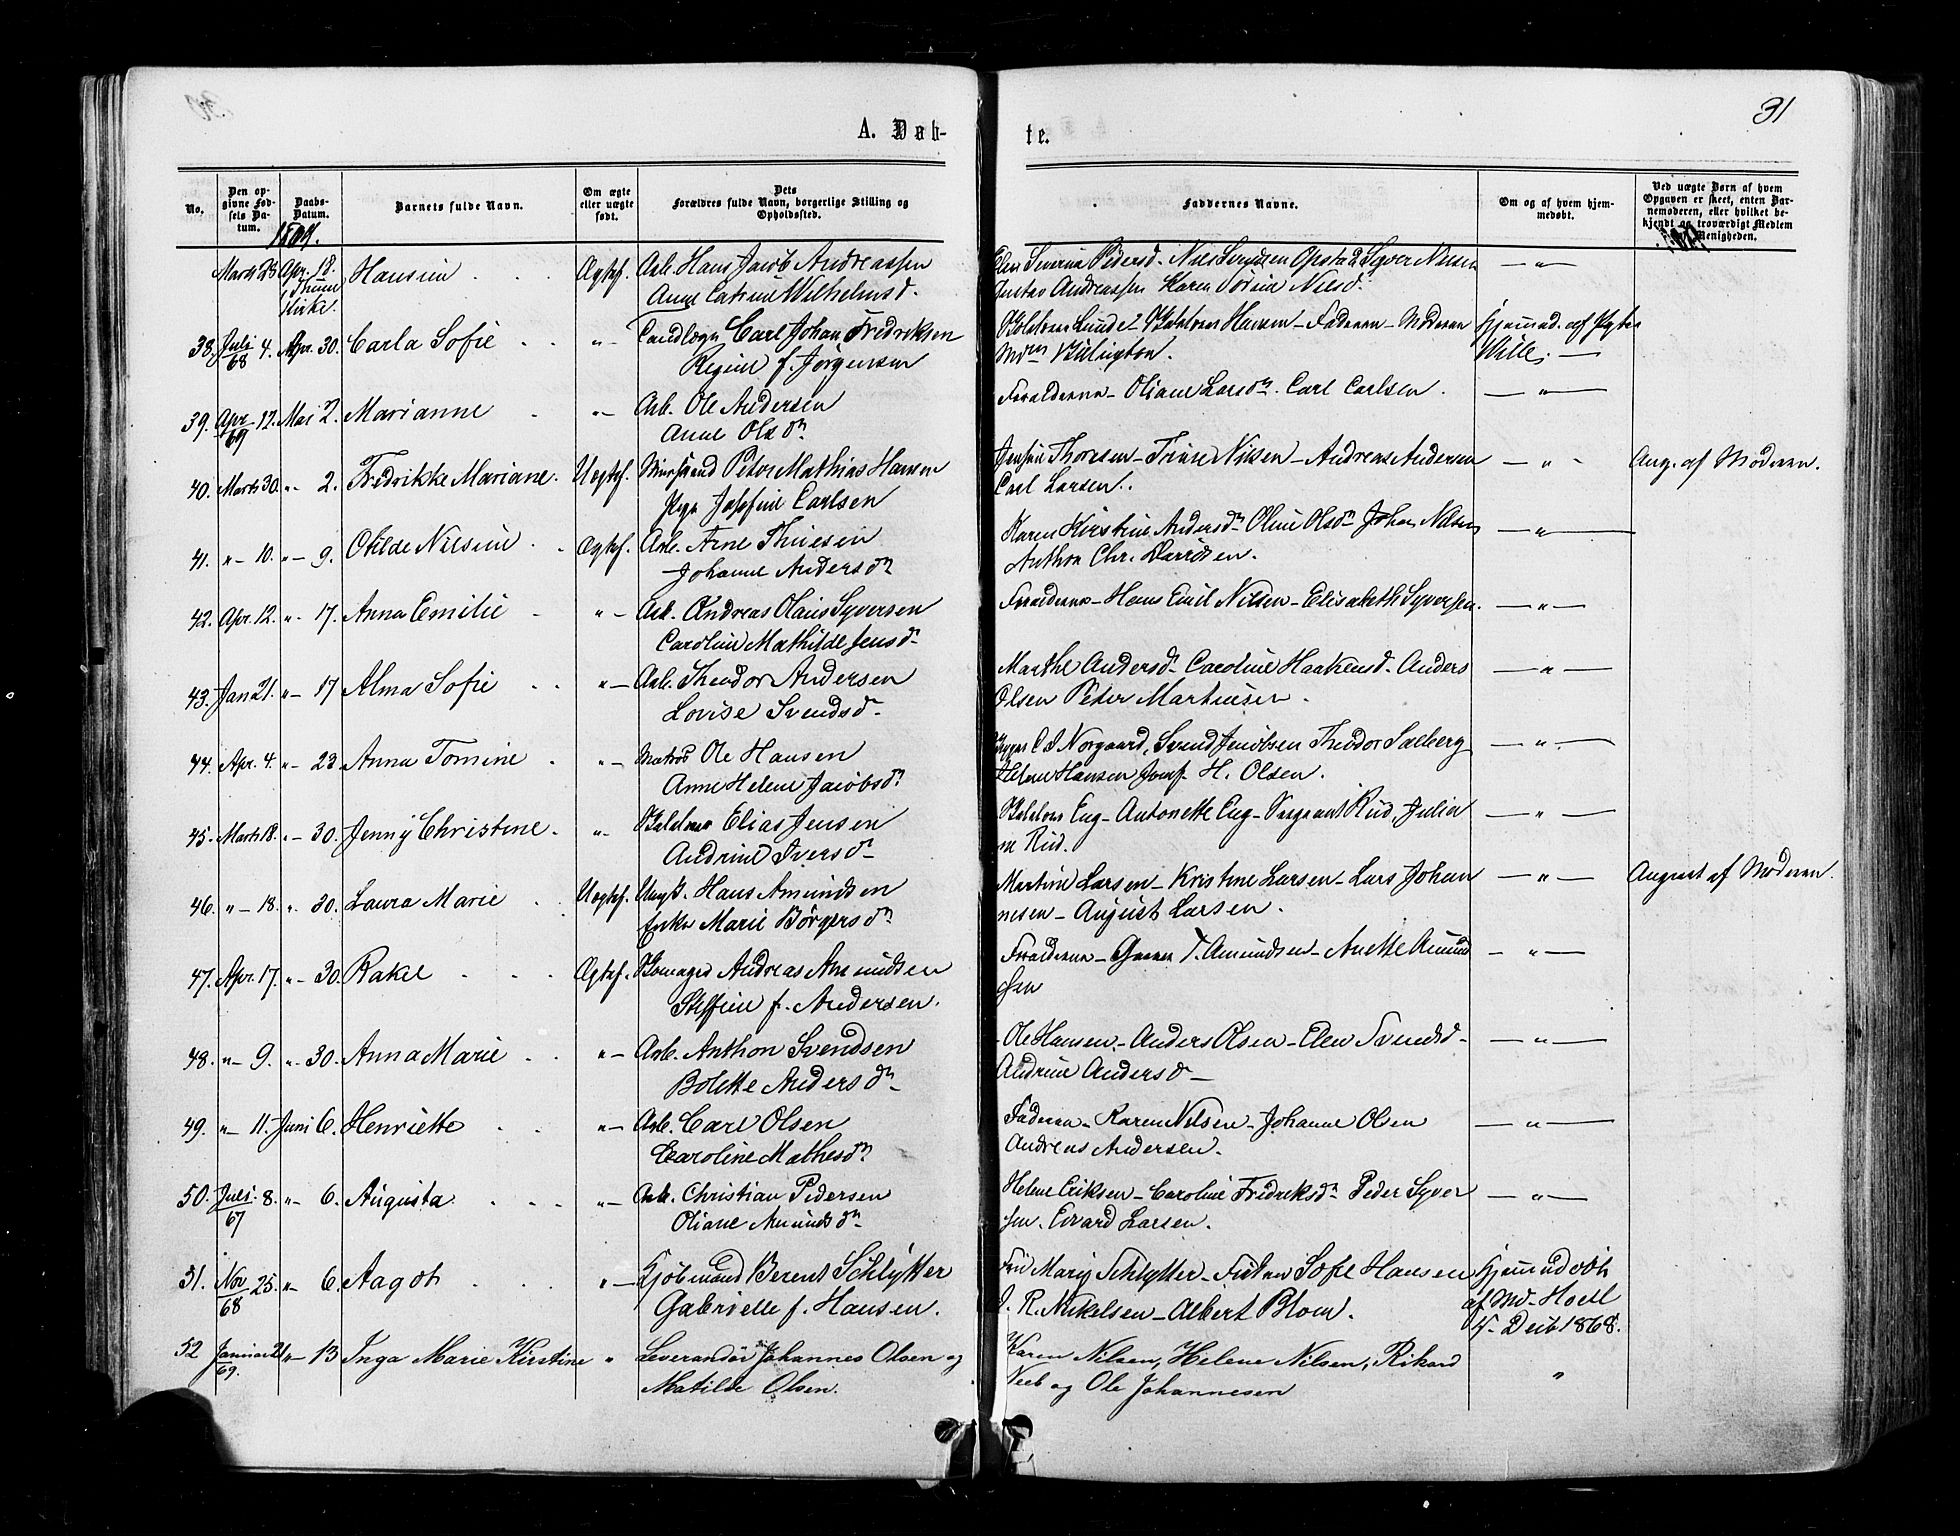 31
A. Døb-
te.
No.
Den op-
givne Fød-
sels Da-
tum.
Daabs-
Datum.
Barnets fulde Navn.
Om ægte
eller uægte
født.
Dets
Forældres fulde Navn, borgerlige Stilling og
Opholdssted.
Faddernes Navne.
Om og af hvem hjem-
medøbt.
Ved uægte Børn af hvem
Opgaven er skeet, enten Bar-
nemoderen, eller hvilket be-
kjendt og troværdigt Medlem
Menigheden.
1869.
Marts 23 Apr. 18. Hansine Ægtef. Arb. Hans Jacob Andreassen
Kirke. Anne Catrine Wilhelmsd.
Severine Pedersd. Nils Syver Nilsen
Gustav Andreassen Karen Nilsd. — „ —
38. Juli 4. Apr. 30. Carla Sofie „ — Carl Johan Fredriksen
68 Regine f. Jørgensen
Lunde Hansen – Faderen – Moderen Hjemmed. af
Wille. —
39. Apr. 12. Mai 2. Marianne „ — Arb. Ole Andersen
69 Anne Olsdn
Forældrene – Oliane Larsdn. Carl Carlsen. — „ —
40. Marts 30. „ 2. Fredrikke Mariane. Uægtef. Peter Mathias Hansen
Pige Josefine Carlsen
Thoresen – Trine Nilsen – Andreas Andersen — „ — Ang. af Moderen.
Carl Larsen.
41. „ – 10. „ – 9. Otilde Nilsine Ægtef. Arb. Arne
Johanne Andersdn
Karen Kirstine Andersdn Oline Olsdn Johan Nilsen — „ —
Anthon Chr. Davidsen.
42. Apr. 12. „ 17. Anna Emilie „ — Arb. Andreas Olaus Syversen
Caroline Mathilde Jensd.
Forældrene – Hans Emil Nilsen – Elisabeth Syversen. — „ —
43. Jan 21. „ – 17 Alma Sofie „ — Arb. Theodor Andersen
Lovise Svendsd.
Marthe Andersd. Caroline Haakensd. Anders — „ —
Olsen Peter Martinsen.
44. Apr. 4. „ – 23 Anna Tomine „ — Matros Ole Hansen
Anne Helene Jacobsdn
C. Norgaard, Svend Jacobsen Theodor Solberg — „ —
Helene Hansen H. Olsen.
45. Marts 18. „ – 30. Jenny Christine. „ — Elias Jensen
Andrine Iversd.
Eng – Antonette Eng – Sergeant Rud, Julia — „ —
Rud.
46. „ – 18. „ 30. Laura Marie Uægtef. Ungk. Hans Amundsen
Enke Marie Børgersdn
Martine Larsen – Kristine Larsen – Lars Johan — „ — Angivet af Moderen.
nesen – August Larsen.
47. Apr. 17. „ – 30. Rakel Ægtef. Andreas Amundsen
f. Andersen.
Forældrene – T. Amundsen – Anette Amund — „ —
sen
48. „ – 9. „ 30. Anna Marie „ — Arb. Anthon Svendsen
Bolette Andersdn
Ole Hansen – Anders Olsen – Elen Svendsd — „ —
Andrine Andersd
49. „ – 11. Juni 6. Henriette „ — Arb. Carl Olsen
Caroline Mathesdn
Faderen – Karen Nilsen – Johanne Olsen — „ —
Andreas Andersen.
50. Juli 8. „ 6. Augusta „ — Arb. Christian Pedersen
67 Oliane Amundsdn
Helene Eriksen – Caroline Fredriksdn Peder Syver — „ —
sen. Evard Larsen.
51. Nov 25. „ 6. Aagot „ — Kjøbmand Berent Schlytter
68 Gabrielle f. Hansen.
Mary Schlytter – Sofie Hansen Hjemmedøbt
R. Mikelsen – Albert Blom. af
4. 1868.
52 Januar 21 „ 13 Inga Marie Kirstine „ Leverandør Johannes Olsen og
69. Matilde Olsen.
Karen Nilsen, Helene Nilsen, Rikard „
og Ole Johannesen